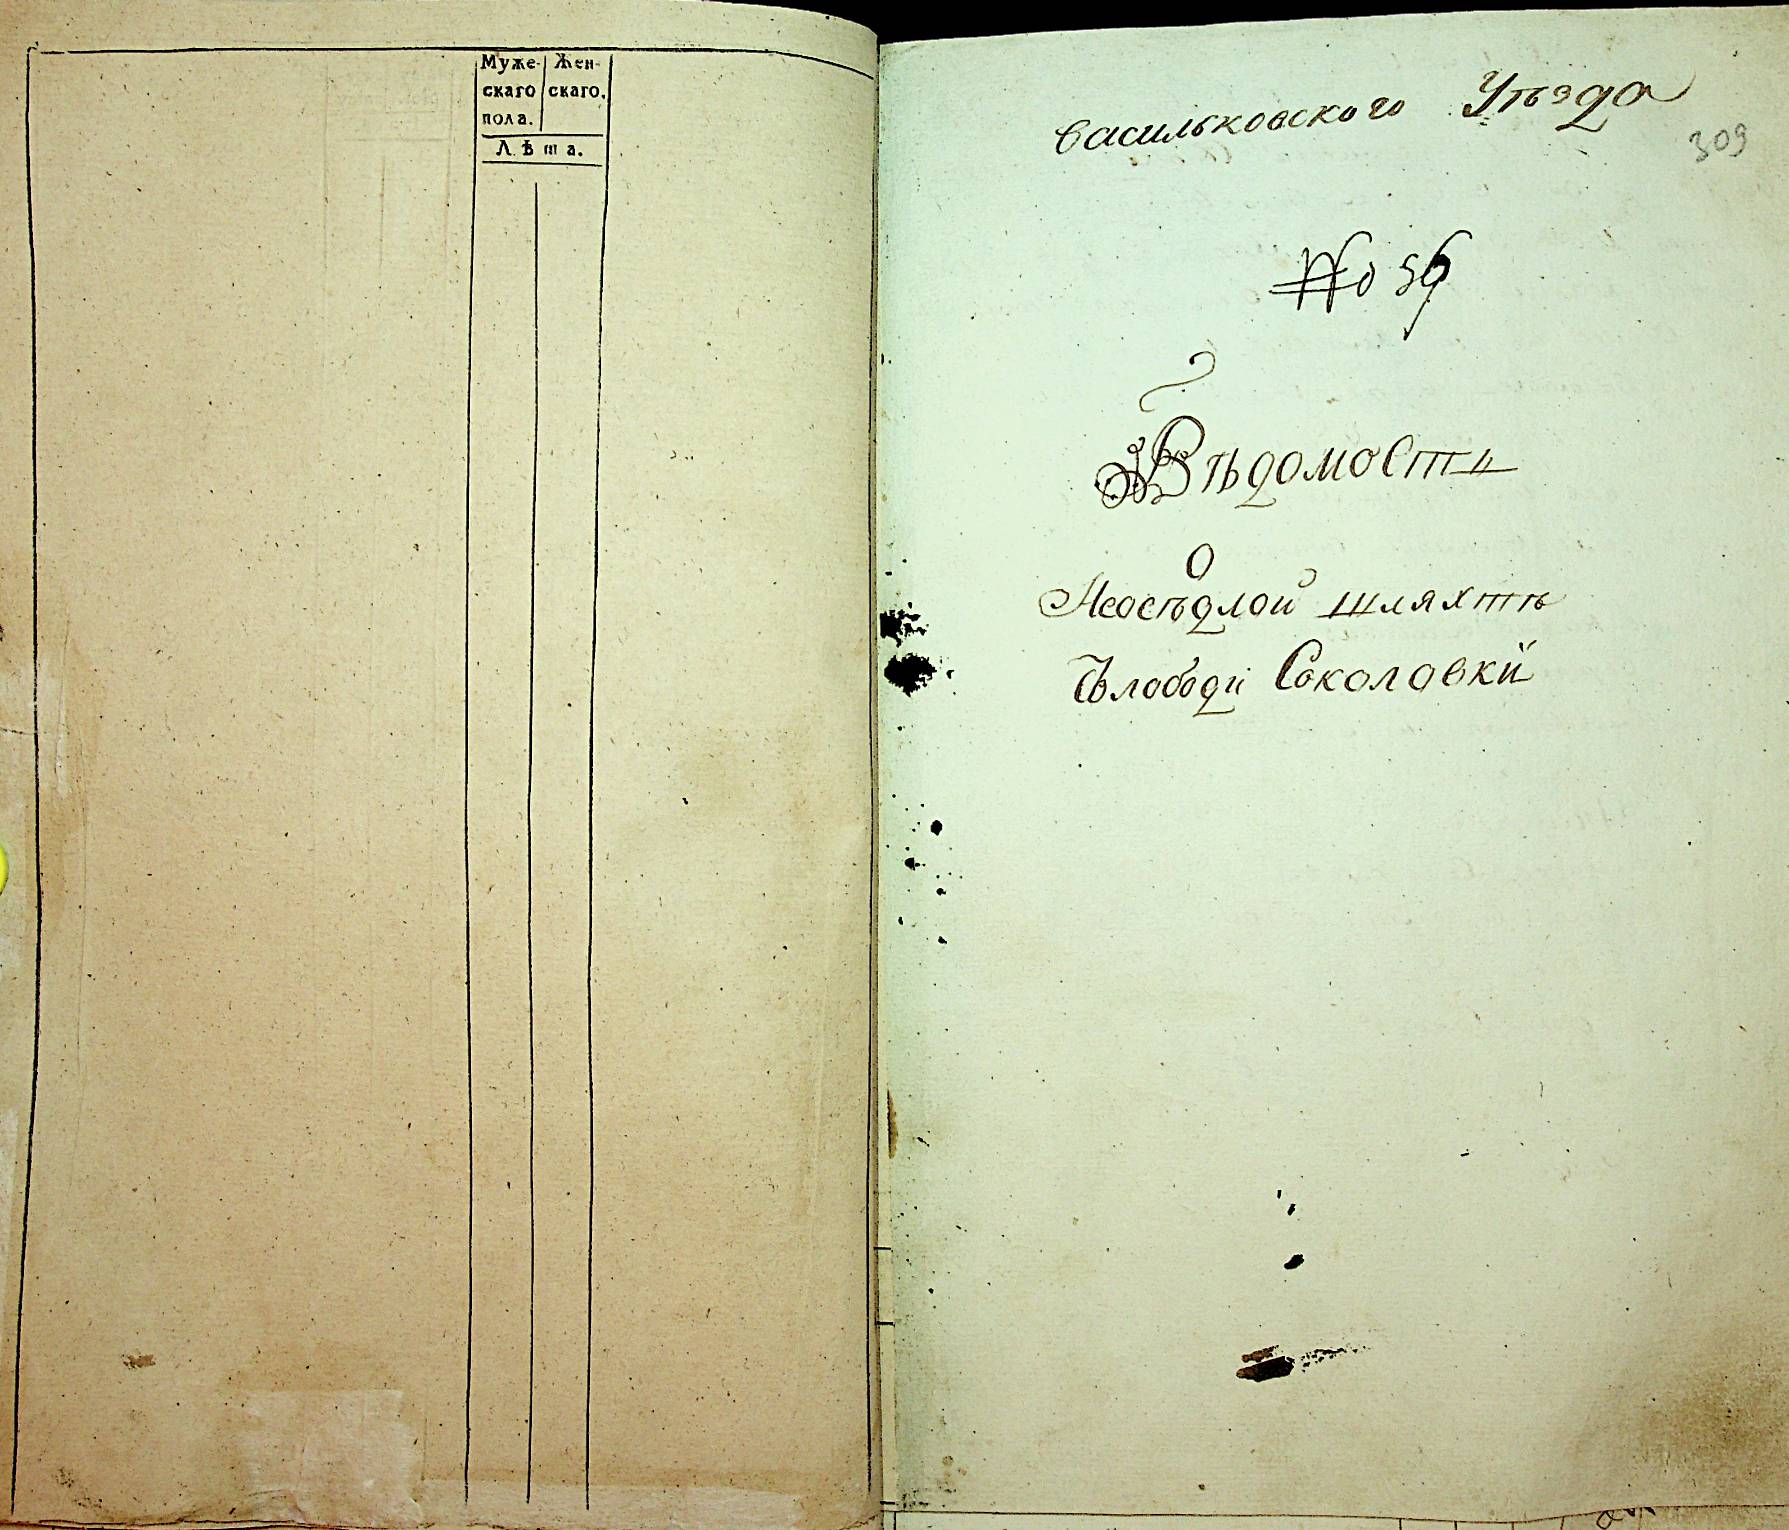 Муже- Жен-
скаго скаго.
пола.
Лѣта.
Васильковского Уѣзда
309
№ 56
Вѣдомость
О
Неосѣдлой шляхтѣ
Слободи Соколовки